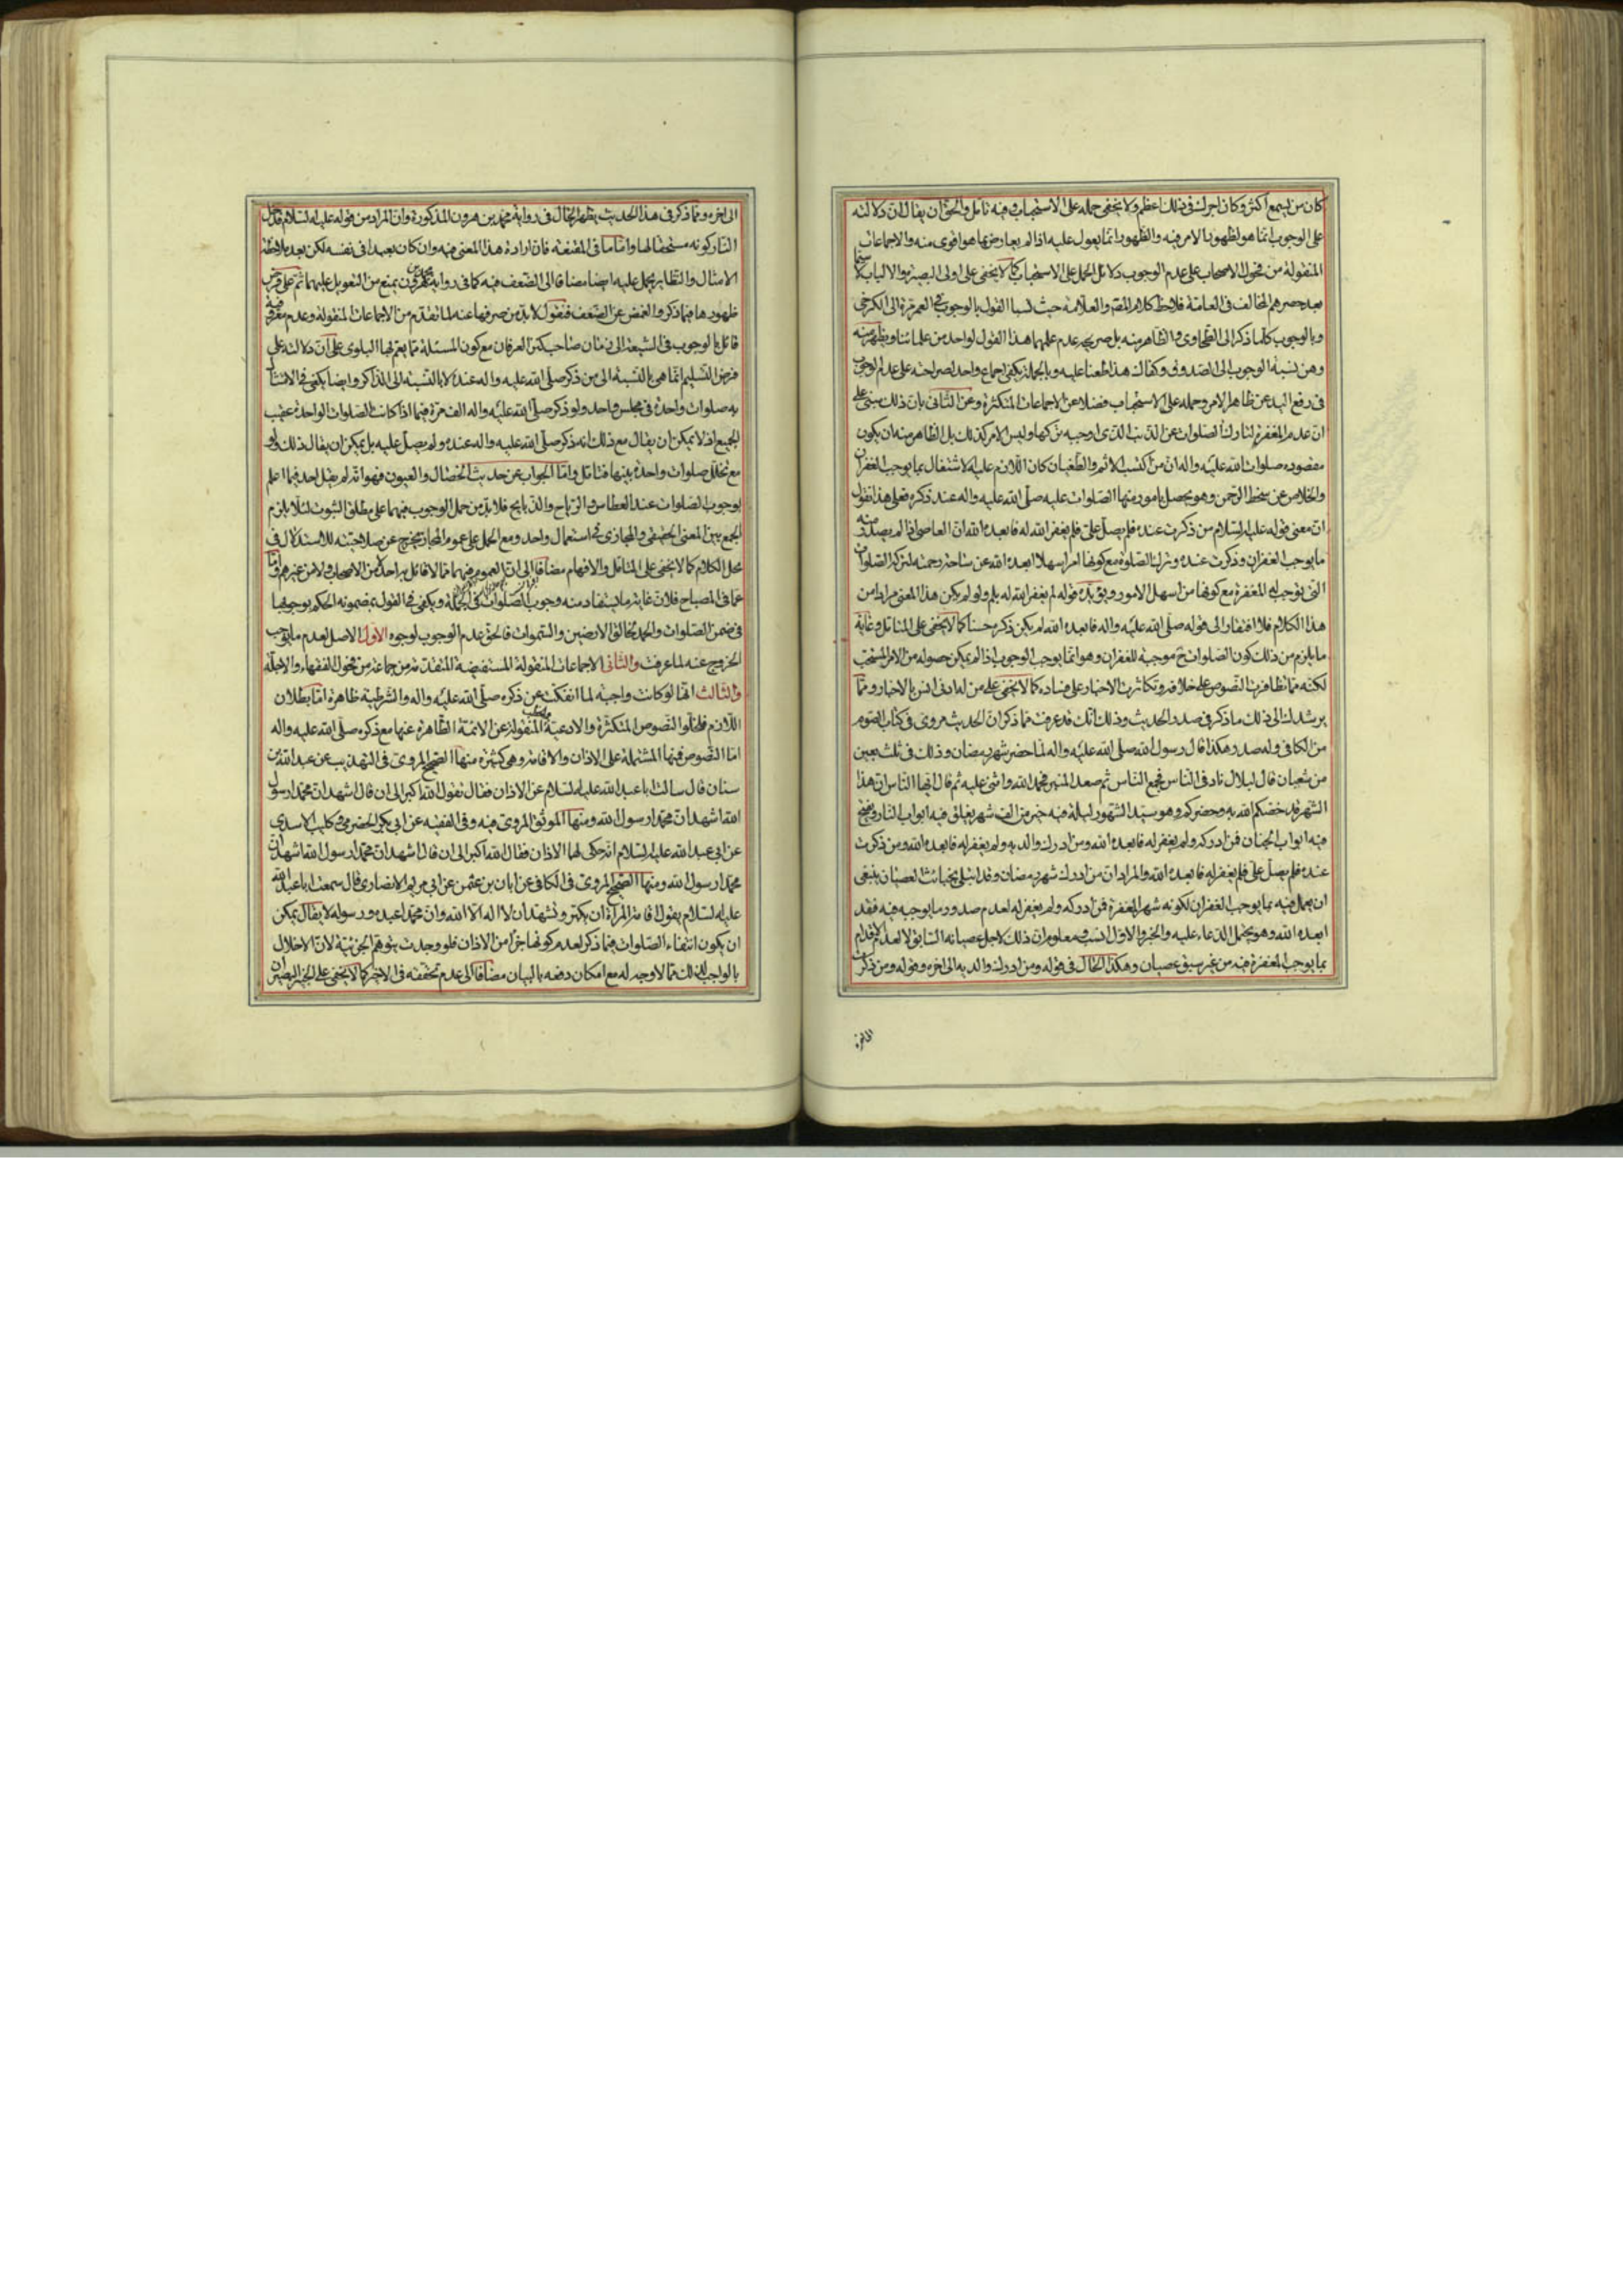 كان من يسمع اكثر وكان اجرك في ذلك اعظم ولا يخفى حمله على الاستحباب وفيه تامل والحق ان يقال ان دلالته
على الوجوب انما هو لظهور الامر فيه والظهور انما يعول عليه اذا لم يعارضها هو اقوى منه والاجماعات
المنقولة من فحول الاصحاب على عدم الوجوب دلائل الحمل على الاستحباب كما لا يخفى على اولى البصيرة والالباب لا سيما
بعد حصرهم المخالف في العامة فلاحظ كلام المقـ والعلامة حيث نسبا القول بالوجوب في العمر مرة الى الكرخي
وبالوجوب كلما ذكر الى الطحاوي والظاهر منه بل صريحه عدم علمهما هذا القول لواحد من علمائنا ويظهر منه
وهن نسبة الوجوب الى الصدوق وكفاك هذا طعنا عليه وبالجملة يكفى اجماع واحد لصراحته على عدم الوجوب
في رفع اليد عن ظاهر الامر وحمله على الاستحباب فضلا عن الاجماعات المتكثرة وعن الثاني بان ذلك مبني على
ان عدم المغفرة لتارك الصلوات عن الذنب الذي اوجبه تركها وليس الامر كذلك بل الظاهر منه ان يكون
مقصوده صلوات الله عليه واله ان من اكتسب الاثم والطغيان كان اللازم عليه الاشتغال بما يوجب الغفران
والخلاص عن سخط الرحمن وهو يحصل بامور منها الصلوات عليه صلى الله عليه واله عند ذكره فعلى هذا نقول
ان معنى قوله عليه السلام من ذكرت عنده فلم يصل علي فلم يغفر الله له فابعده الله ان العاصي اذا لم يصدر منه
ما يوجب الغفران وذكرت عنده وترك الصلوة مع كونها امرا سهلا ابعده الله عن ساحة رحمته لتركه الصلوات
التي توجب له المغفرة مع كونها من اسهل الامور ويؤيده قوله لم يغفر الله له بلم ولو لم يكن هذا المعنى مرادا من
هذا الكلام فلا افتقار الى قوله صلى الله عليه واله فابعده الله لم يكن ذكره حسنا كما لا يخفى على المتامل وغاية
ما يلزم من ذلك كون الصلوات ح موجبة للغفران وهو انما يوجب الوجوب اذا لم يمكن حصوله من الامر المستحب
لكنه مما تظافرت النصوص على خلافه وتكاثرت الاخبار على فساده كما لا يخفى على من له ادنى انس بالاخبار ومما
يرشدك الى ذلك ما ذكر في صدر الحديث وذلك انك قد عرفت مما ذكر ان الحديث مروي في كتاب الصوم
من الكافي وله صدر هكذا قال رسول الله صلى الله عليه واله لما حضر شهر رمضان وذلك في ثلث بقين
من شعبان قال لبلال ناد في الناس فجمع الناس ثم صعد المنبر فحمد الله واثنى عليه ثم قال ايها الناس ان هذا
الشهر قد خصكم الله به وحضركم وهو سيد الشهور ليلة فيه خير من الف شهر يغلق فيه ابواب النار ويفتح
فيه ابواب الجنان فمن ادركه ولم يغفر له فابعده الله ومن ادرك والديه ولم يغفر له فابعده الله ومن ذكرت
عنده فلم يصل علي فلم يغفر له فابعده الله والمراد ان من ادرك شهر رمضان وقد ابتلى بخبائث العصيان ينبغي
ان يعمل فيه بما يوجب الغفران لكونه شهر المغفرة فمن ادركه ولم يغفر له لعدم صدور ما يوجبه فيه فقد
ابعده الله وهو يحتمل الدعاء عليه والخبر والاول انسب ومعلوم ان ذلك لاجل عصيانه السابق لا لعدم الاقدام
بما يوجب المغفرة فيه من غير سبق عصيان وهكذا الحال في قوله ومن ادرك والديه الى اخره وقوله ومن ذكرت
الى اخره ومما ذكر في هذا الحديث يظهر الحال في رواية محمد بن هرون المذكورة وان المراد من قوله عليه السلام فدخل
النار كونه مستحقا لها واما ما في المقنعة فان ارادة هذا المعنى فيه وان كان بعيدا في نفسه لكن بعد ملاحظة
الامثال والنظاير يحمل عليه ايضا مضافا الى الضعف فيه كما في رواية محمد بن هرون يمنع من التعويل عليهما ثم على فرض
ظهورها فيما ذكر والغمض عن الضعف فنقول لا بد من صرفها عنه لما تقدم من الاجماعات المنقولة وعدم معروفية
قائل بالوجوب في الشيعة الى زمان صاحب كنز العرفان مع كون المسئلة مما يعم لها البلوى على ان دلالته على
فرض التسليم انما هي بالنسبة الى من ذكر صلى الله عليه واله عنده لا بالنسبة الى الذاكر وايضا يكفى في الامتثال
به صلوات واحدة في مجلس واحد ولو ذكر صلى الله عليه واله الف مرة فيما اذا كانت الصلوات الواحدة عقيب
الجميع اذ لا يمكن ان يقال مع ذلك انه ذكر صلى الله عليه واله عنده ولم يصل عليه بل يمكن ان يقال ذلك ولو
مع تخلل صلوات واحدة بينها فتامل واما الجواب عن حديث الخصال والعيون فهو انه لم يقل احد فيما اعلم
بوجوب الصلوات عند العطاس والرياح والذبايح فلا بد من حمل الوجوب فيهما على مطلق الثبوت لئلا يلزم
الجمع بين المعنى الحقيقي والمجازي في استعمال واحد ومع الحمل على عموم المجاز يخرج عن صلاحيته للاستدلال في
محل الكلام كما لا يخفى على المتامل والافهام مضافا الى ان العموم فيهما مما لا قائل به احد من الاصحاب ولا من غيرهم واما
عما في المصباح فلان غاية ما يستفاد منه وجوب الصلوات في الجملة ويكفى في القول بمضمونه الحكم بوجوبها
في ضمن الصلوات والحمد لخالق الارضين والسموات فالحق عدم الوجوب لوجوه الاول الاصل لعدم ما يوجب
الخروج عنه لما عرفت والثاني الاجماعات المنقولة المستفيضة المتقدمة من جماعة من فحول الفقهاء والاجلة
والثالث انها لو كانت واجبة لما انفكت عن ذكره صلى الله عليه واله والشرطية ظاهرة اما بطلان
اللازم فلخلو النصوص المتكثرة والادعية المنقولة عن الائمة الطاهرة عنها مع ذكره صلى الله عليه واله
اما النصوص فمنها المشتملة على الاذان والاقامة وهي كثيرة منها الصحيح المروي في التهذيب عن عبد الله بن
سنان قال سالت ابا عبد الله عليه السلام عن الاذان فقال تقول الله اكبر الى ان قال اشهد ان محمدا رسول
الله اشهد ان محمدا رسول الله ومنها الموثق المروي فيه وفي الفقيه عن ابي بكر الحضرمي وكليب الاسدي
عن ابي عبد الله عليه السلام انه حكى لهما الاذان فقال الله اكبر الى ان قال اشهد ان محمدا رسول الله اشهد ان
محمدا رسول الله ومنها الصحيح المروي في الكافي عن ابان بن عثمن عن ابي مريم الانصاري قال سمعت ابا عبد الله
عليه السلام يقول اقامة المرأة ان يكبر وتشهد ان لا اله الا الله وان محمدا عبده ورسوله لا يقال يمكن
ان يكون انتفاء الصلوات فيما ذكر لعدم كونها جزأ من الاذان فلو وجدت يتوهم الجزئية لان الاخلال
بالواجب لذلك مما لا وجه له مع امكان دفعه بالبيان مضافا الى عدم تحققه في الاخير كما لا يخفى على الخبير البصير